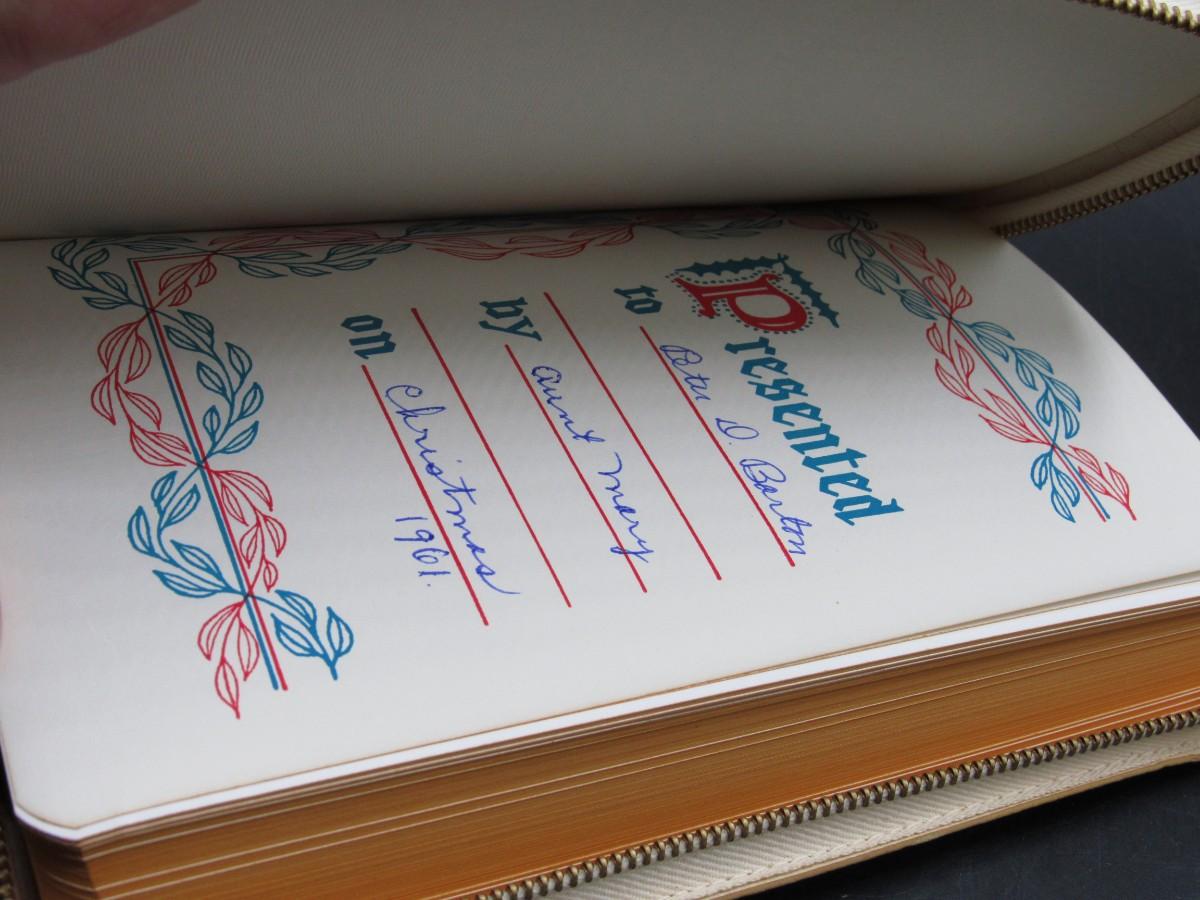 Presented
to Peter D. Barton
by Aunt Mary
on Christmas
1961.